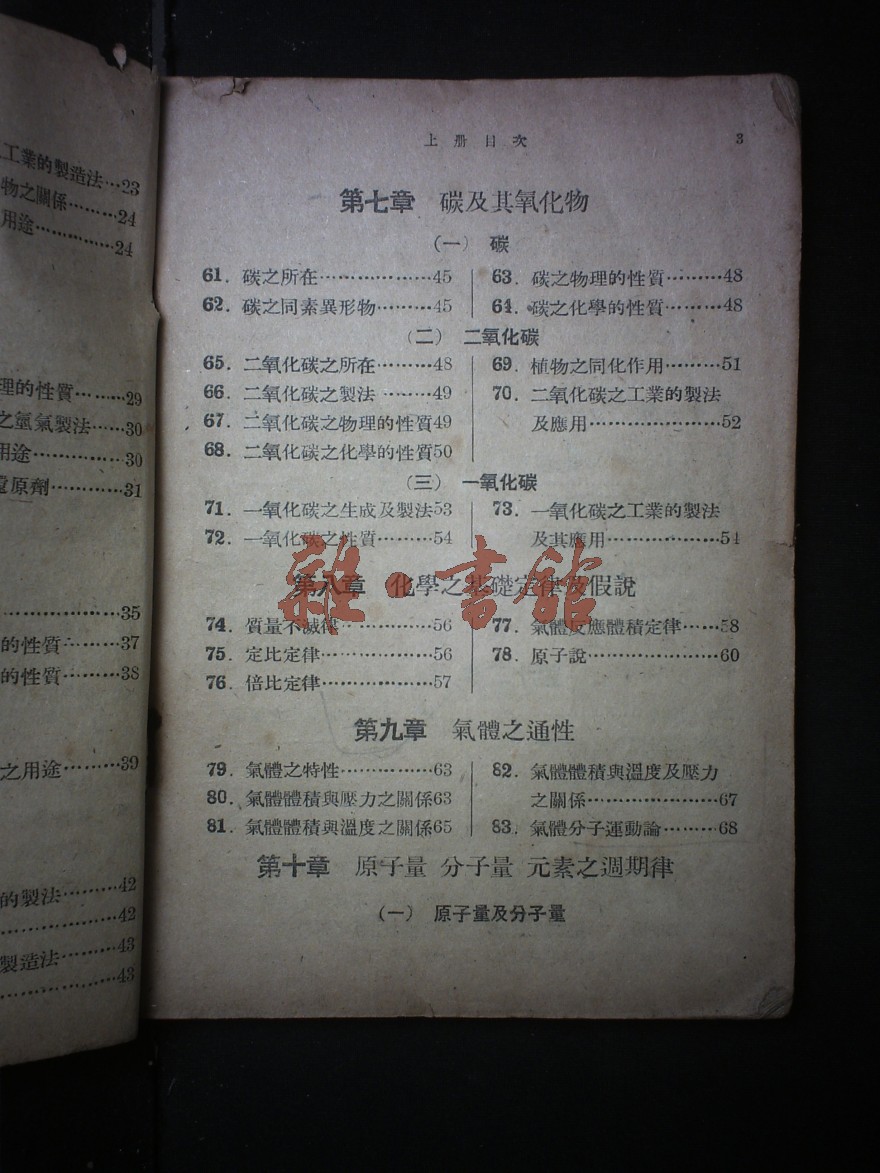 工業的製造法…23
物之關係………24
用途…………24
理的性質………29
之氫氣製法……30
用途…………30
原劑…………31
……………35
的性質………37
的性質………38
之用途………39
的製法………42
……………42
製造法………43
……………43
上册目次 3
第七章 碳及其氧化物
(一) 碳
61. 碳之所在………………45
62. 碳之同素異形物………45
63. 碳之物理的性質………48
64. 碳之化學的性質………48
(二) 二氧化碳
65. 二氧化碳之所在………48
66. 二氧化碳之製法………49
67. 二氧化碳之物理的性質49
68. 二氧化碳之化學的性質50
69. 植物之同化作用………51
70. 二氧化碳之工業的製法
及應用…………………52
(三) 一氧化碳
71. 一氧化碳之生成及製法53
72. 一氧化碳之性質………54
73. 一氧化碳之工業的製法
及其應用………………54
第八章 化學之基礎定律及假說
74. 質量不滅律……………56
75. 定比定律………………56
76. 倍比定律………………57
77. 氣體反應體積定律……58
78. 原子說…………………60
第九章 氣體之通性
79. 氣體之特性……………63
80. 氣體體積與壓力之關係63
81. 氣體體積與溫度之關係65
82. 氣體體積與溫度及壓力
之關係…………………67
83. 氣體分子運動論………68
第十章 原子量 分子量 元素之週期律
(一) 原子量及分子量
雜·書館